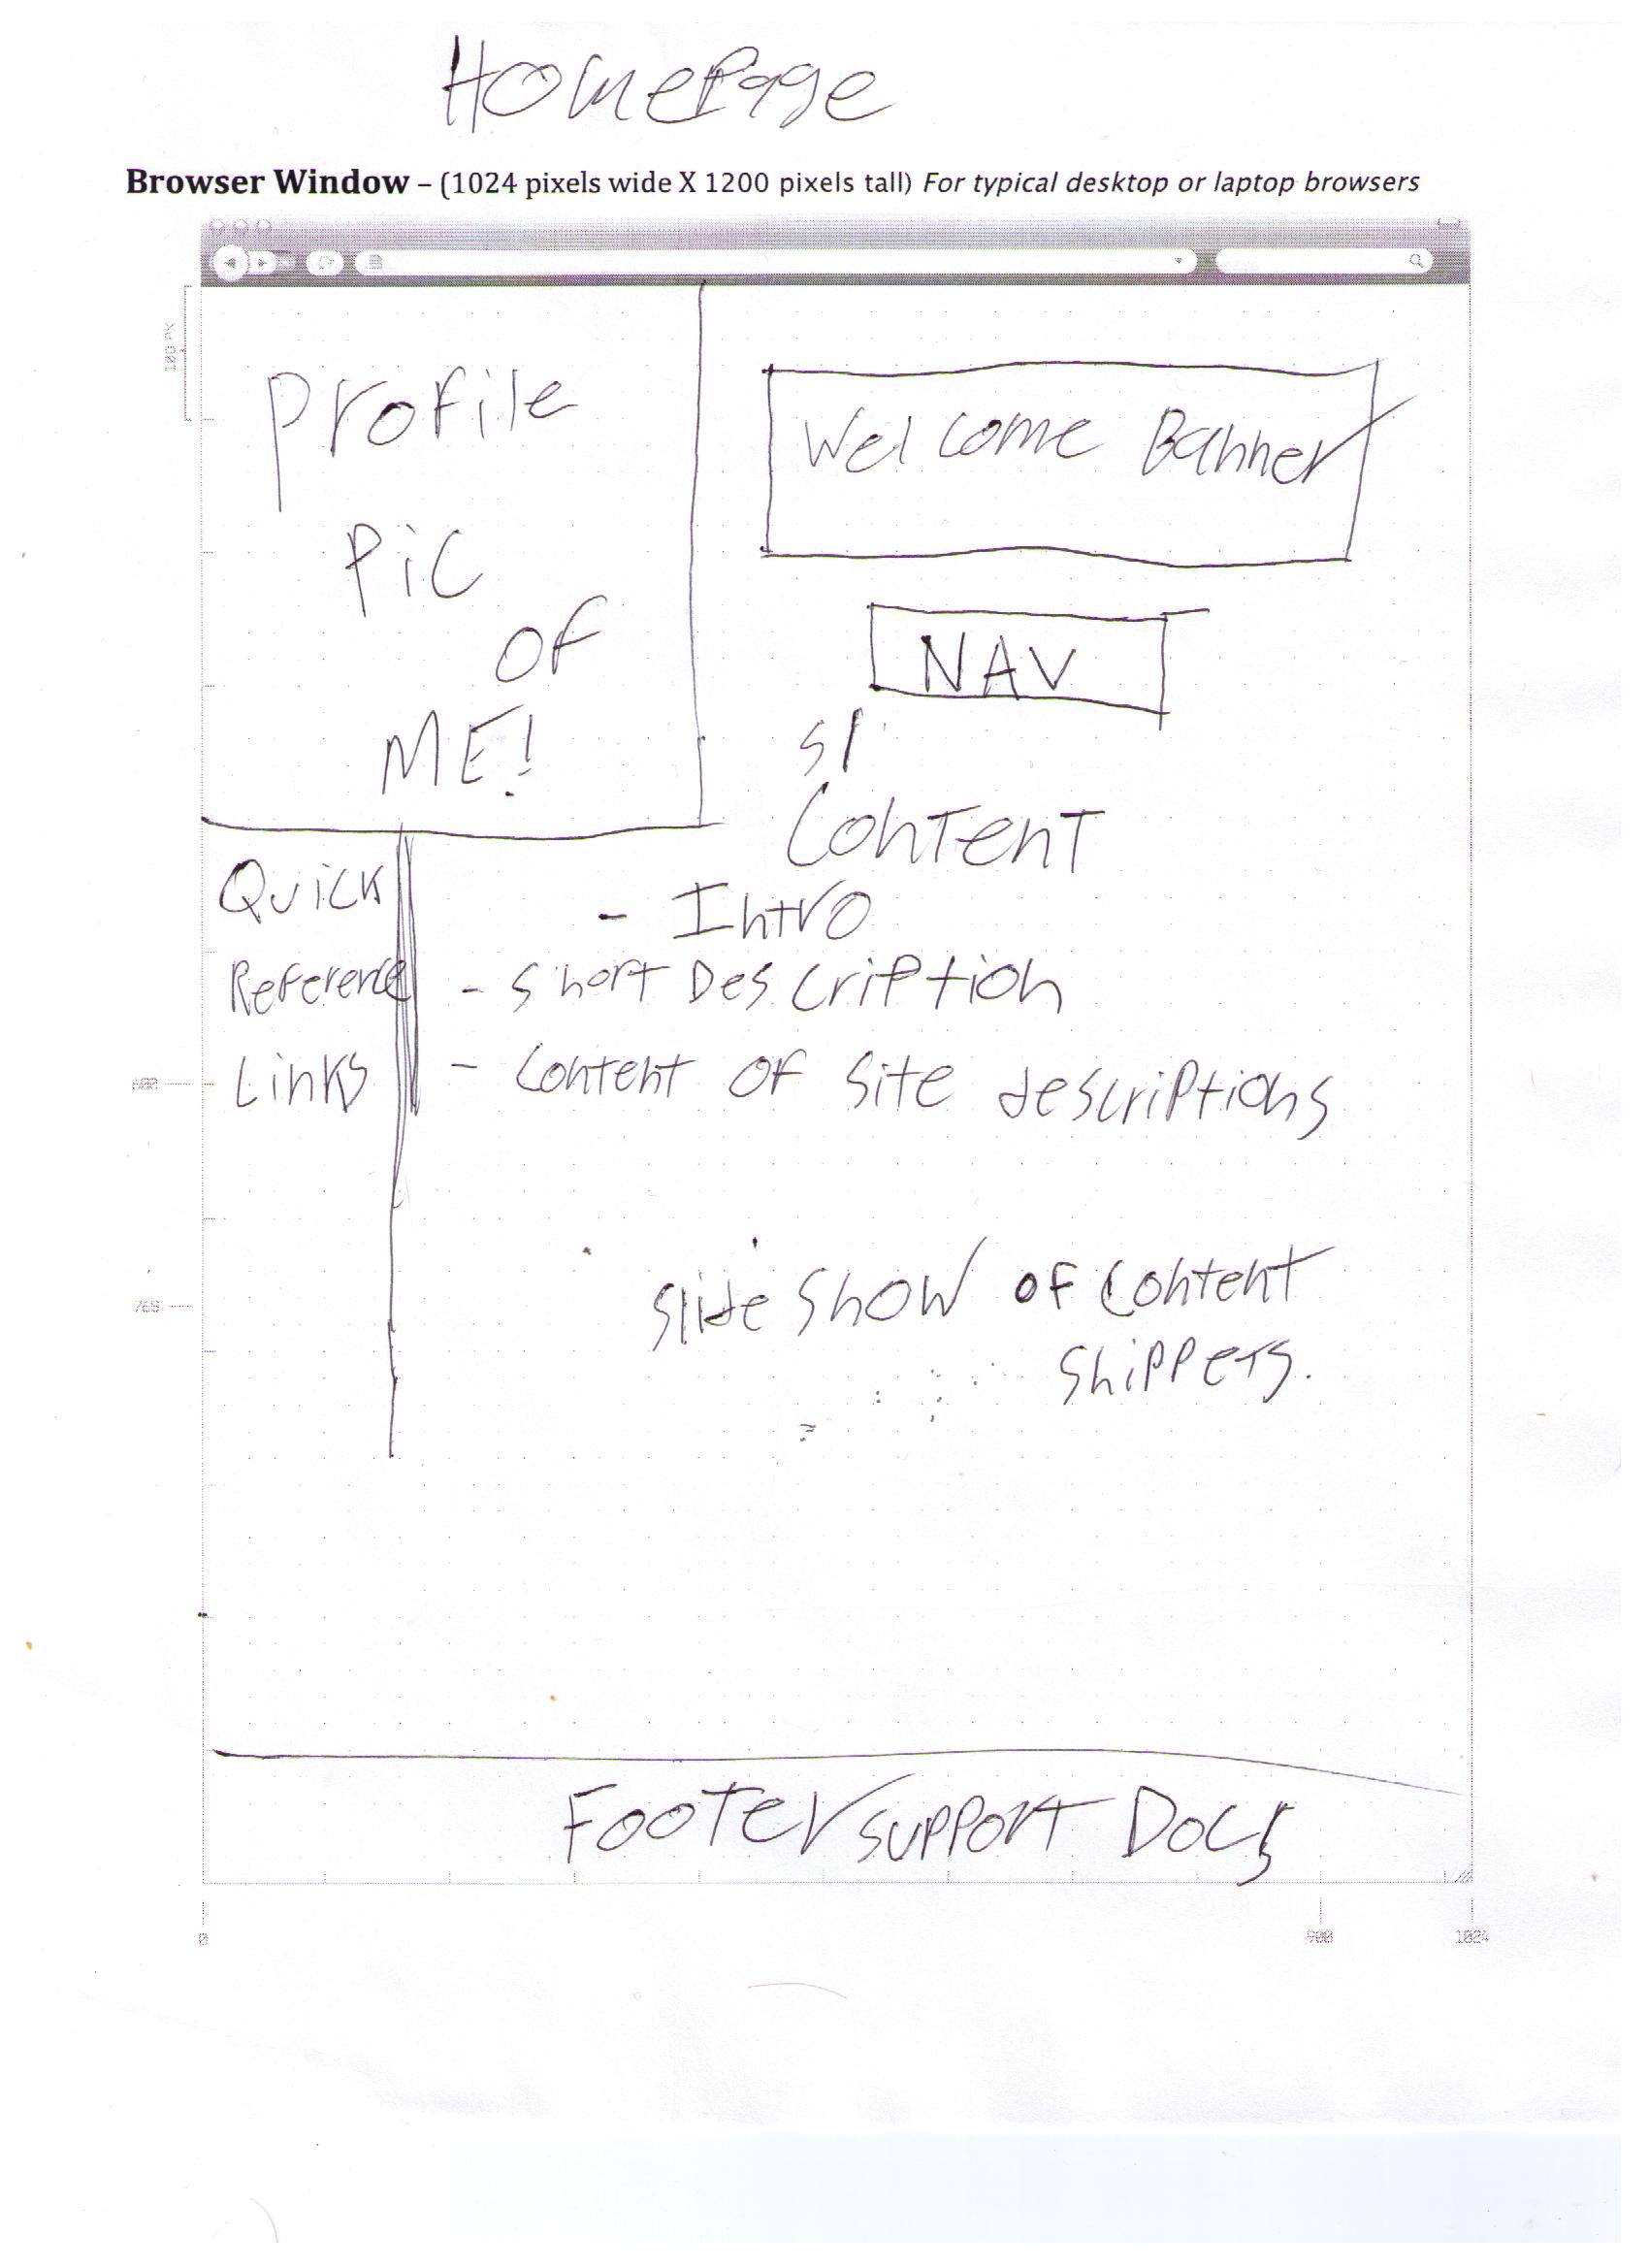 HomePage
Browser Window – (1024 pixels wide X 1200 pixels tall) For typical desktop or laptop browsers
100 PX
Profile
Pic
of
ME!
Welcome Banner
NAV
Sl
Content
- Intro
- Short Description
- Content of Site descriptions
Quick
Reference
Links
600
Slide Show of Content
Shippets.
768
Footer Support Docs
0
900
1024